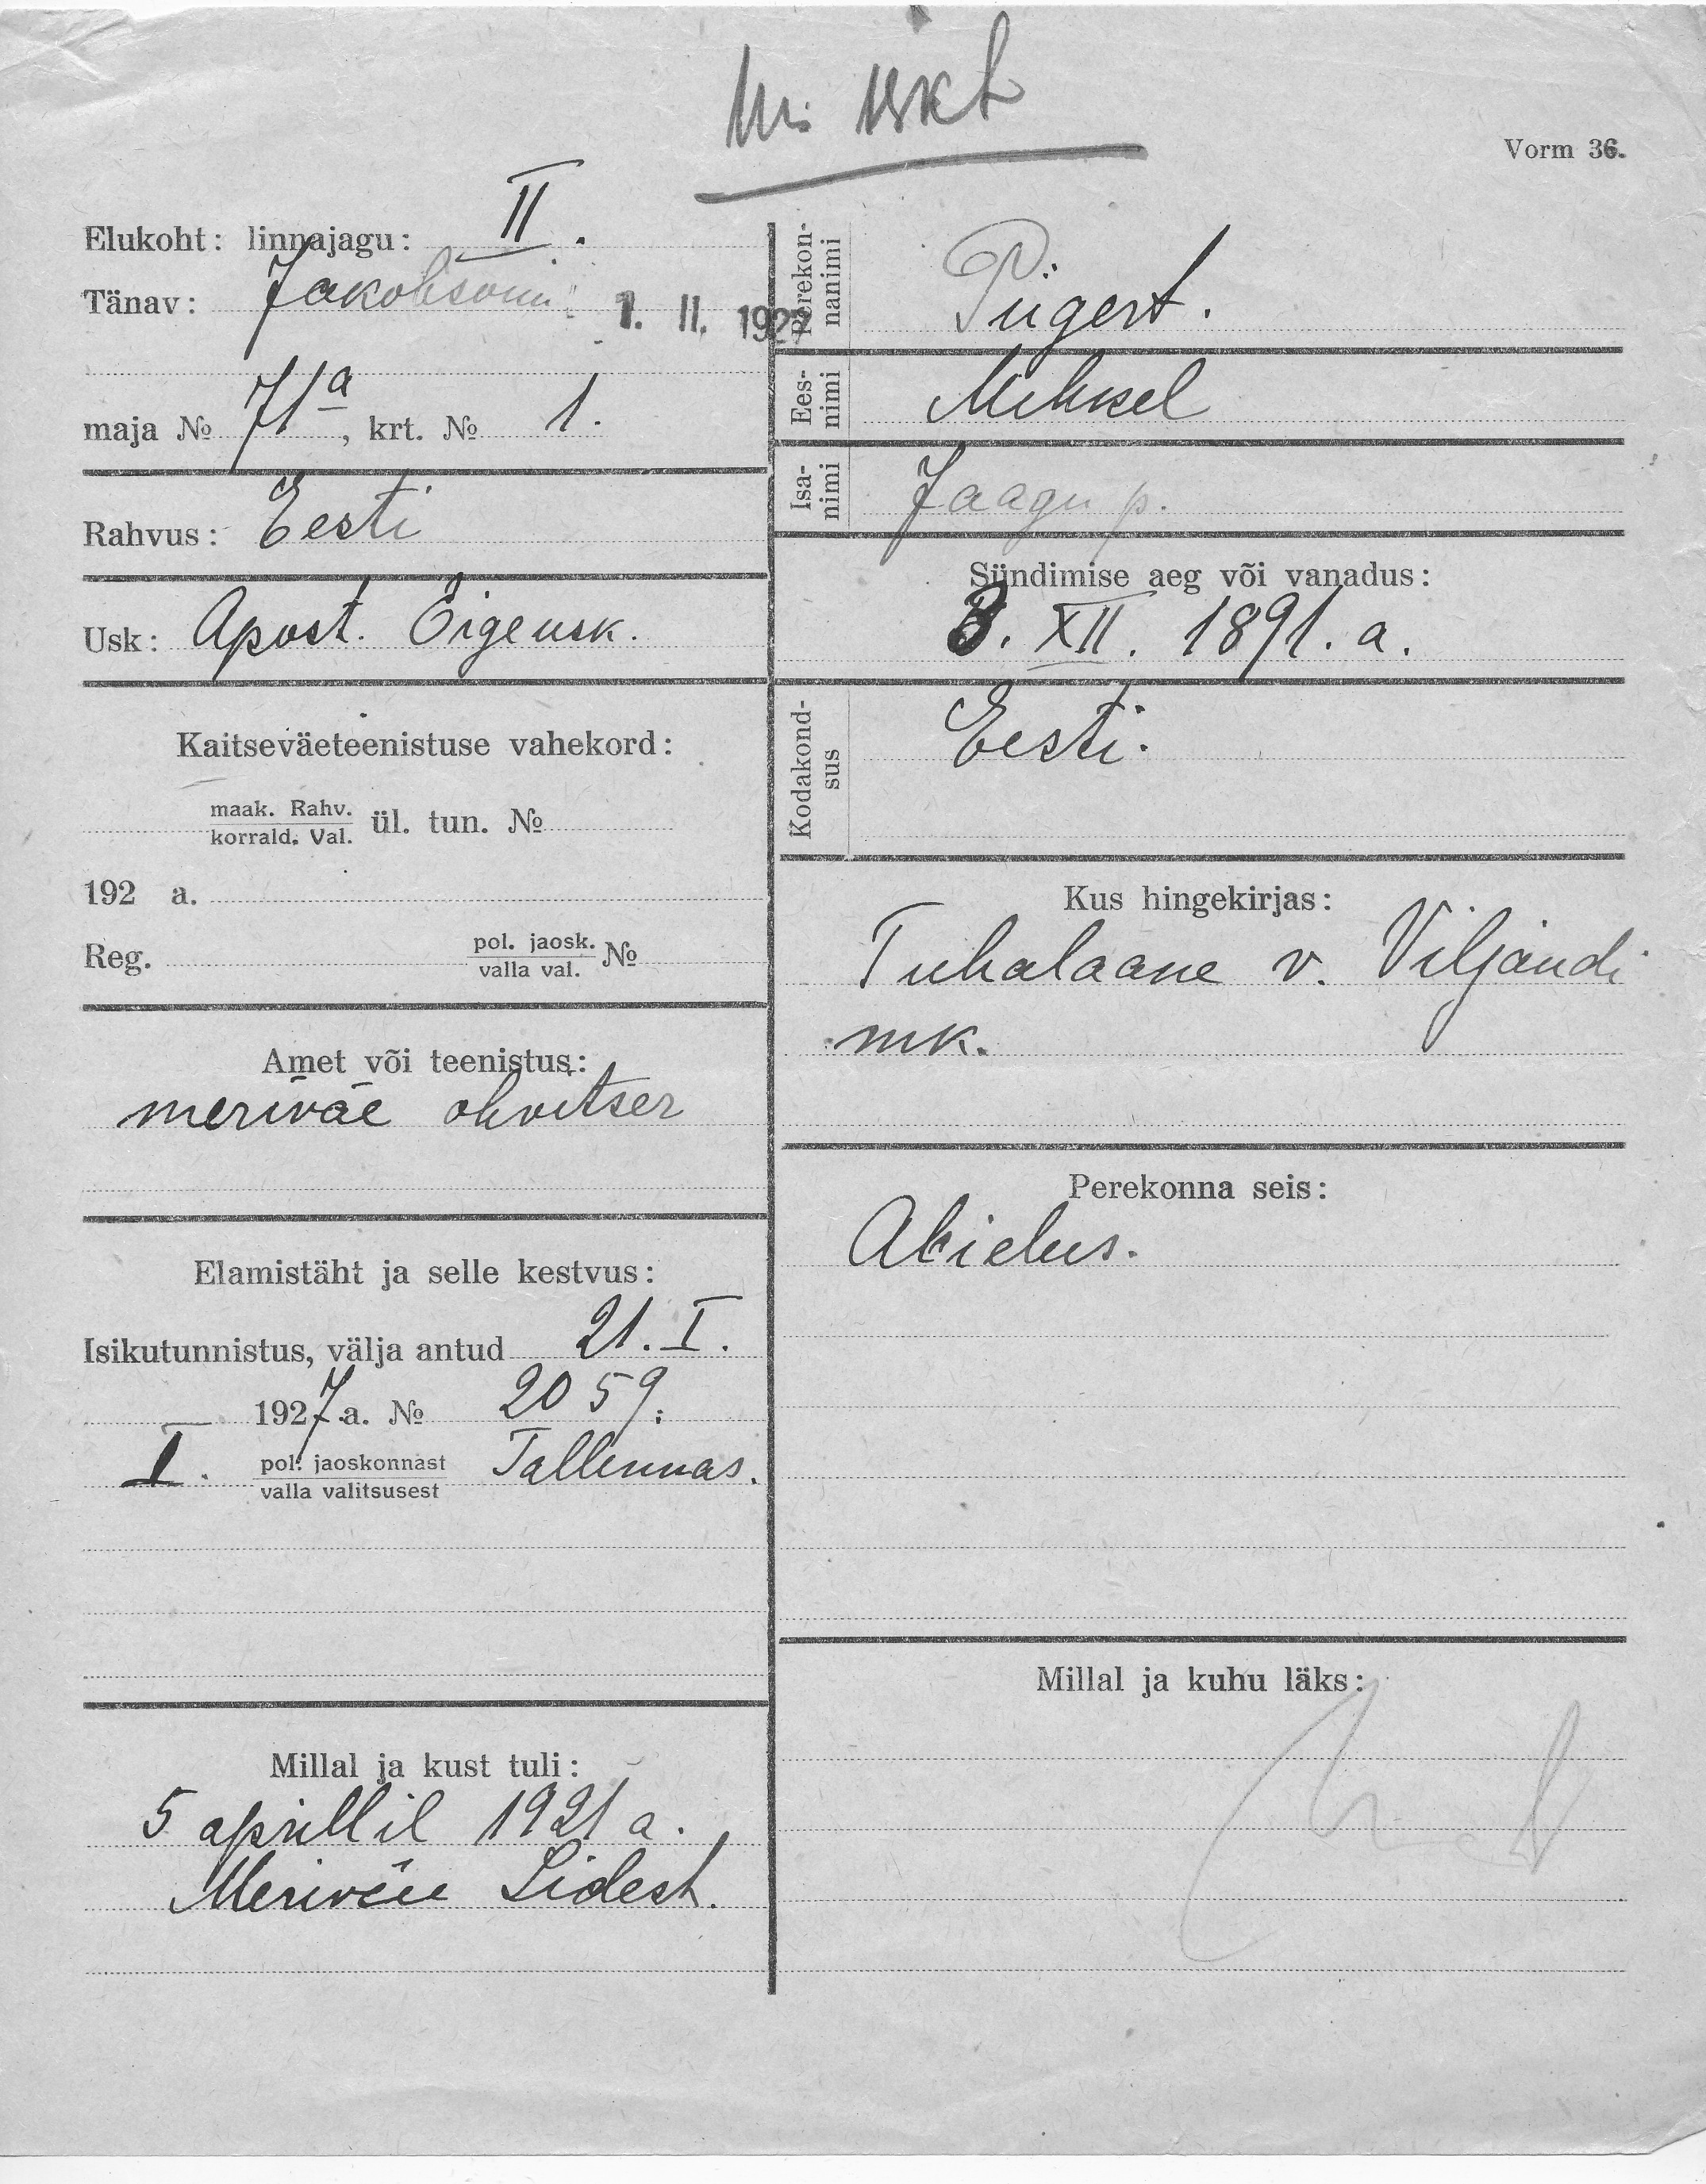 Vorm 36.
Elukoht: linnajagu: II.
Tänav: Jakobsoni
1. II. 1927
maja № 71a, krt. № 1.
Rahvus: Eesti
Usk: Apost. Õigeusk.
Kaitseväeteenistuse vahekord:
maak. Rahv.
korrald. Val. ül. tun. №
192 a.
Reg. pol. jaosk.
valla val. №
Amet või teenistus:
meriväe ohvitser
Elamistäht ja selle kestvus:
Isikutunnistus, välja antud 21. I.
1927 a. № 2059.
I. pol. jaoskonnast Tallinnas.
valla valitsusest
Millal ja kust tuli:
5 aprillil 1921 a.
Meriväe Sidest.
Perekon-
nanimi Pügert.
Ees-
nimi Mihkel
Isa-
nimi Jaagu p.
Sündimise aeg või vanadus:
3. XII. 1891. a.
Kodakond-
sus Eesti.
Kus hingekirjas:
Tuhalaane v. Viljandi
mk.
Perekonna seis:
Abielus.
Millal ja kuhu läks: